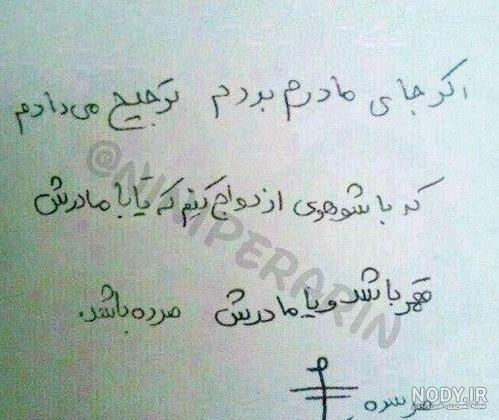 اگر جای مادرم بودم ترجیح می‌دادم
که با شوهری ازدواج کنم که یا با مادرش
قهر باشد و یا مادرش مرده باشد.
@NIMPERARIN
NODY.IR